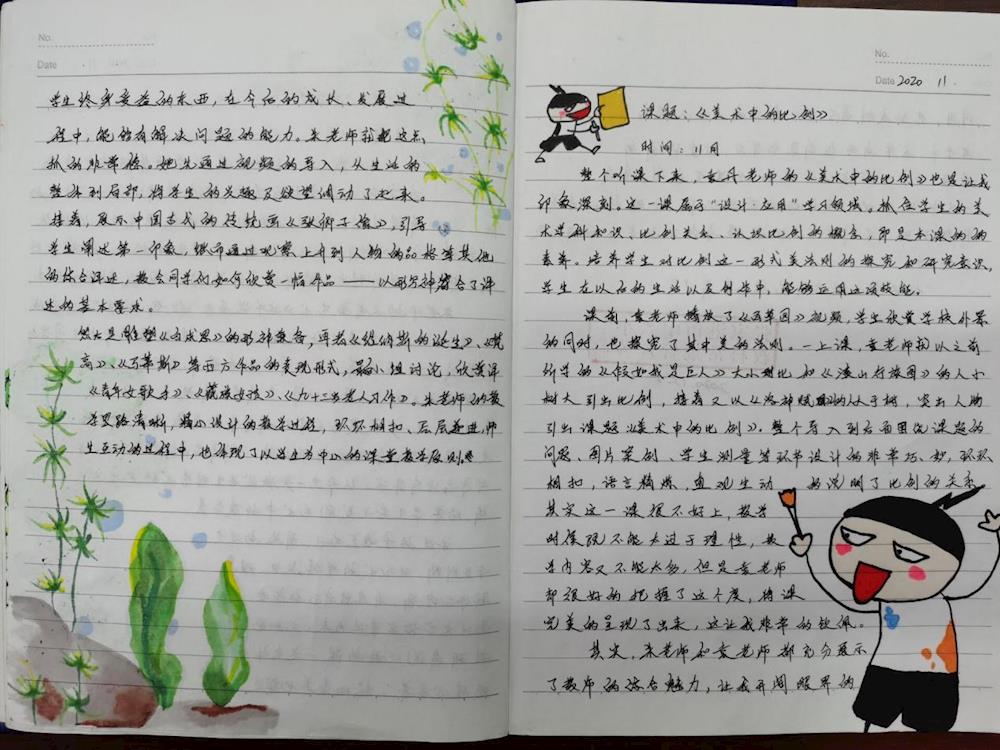 No.
Date
学生终身受益的东西,在今后的成长、发展过
程中,能够有解决问题的能力。朱老师就把这点
抓的非常稳。她先通过视频的导入,从生活的
整体到局部,将学生的兴趣及欲望调动了起来。
接着,展示中国古代的传统画《 像》,引导
学生阐述第一印象,继而通过观察上升到人物的品格等其他
的综合评述,教会同学们如何欣赏一幅作品——以形写神符合了评
述的基本要求。
然后是雕塑《 》的形神兼备,再者《维纳斯的诞生》、《梵
高》、《 》等西方作品的表现形式,最后小组讨论,欣赏评
《青年女歌手》、《戴珠女孩》、《九十三岁老人习作》。朱老师的教
学思路清晰,精心设计的教学过程,环环相扣、层层递进,师
生互动的过程中,也体现了以学生为中心的课堂教学原则。
No.
Date 2020 11.
课题:《美术中的比例》
时间:11月
整个听课下来,袁丹老师的《美术中的比例》也是让我
印象深刻。这一课属于“设计·应用”学习领域。抓住学生的美
术学科知识、比例关系、认识比例的概念,即是本课的的
素养。培养学生对比例这一形式美法则的探究和研究意识,
学生在以后的生活以及创作中,能够运用这项技能。
课前,袁老师播放了《 园》视频,学生欣赏学校外景
的同时,也探究了其中美的法则。一上课,袁老师都以之前
所学的《假如我是巨人》大小对比和《溪山行旅图》的人小
树大引出比例,接着又以《洛神赋图》的人大于树,突出人物
引出课题《美术中的比例》。整个导入到后面围绕课题的
问题、图片案例、学生测量等环节设计的非常巧妙,环环
相扣,语言精炼,直观生动 的说明了比例的关系
其实这一课很不好上,教学
时候既不能太过于理性,教
学内容又不能太多,但是袁老师
却很好的把握了这个度,将课
完美的呈现了出来,这让我非常的钦佩。
其实,朱老师和袁老师都充分展示
了教师的综合魅力,让我开阔眼界的